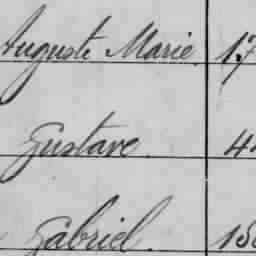 Auguste Marie 17
Gustave 44
Gabriel. 15